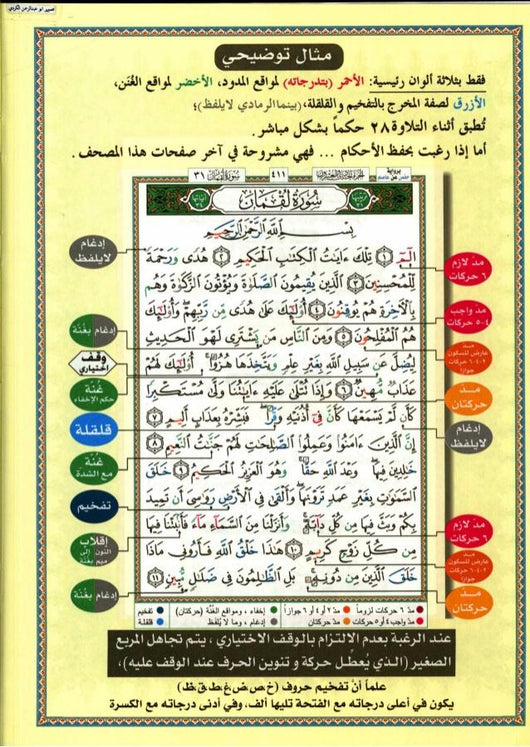 تصوير ابو عبدالرحمن الكردي
مثال توضيحي
فقط بثلاثة ألوان رئيسية: الأحمر (بتدرجاته) لمواقع المدود، الأخضر لمواقع الغُنَن،
الأزرق لصفة المخرج بالتفخيم والقلقلة، (بينما الرمادي لا يلفظ)؛
تُطبق أثناء التلاوة ٢٨ حكماً بشكل مباشر.
أما إذا رغبت بحفظ الأحكام ... فهي مشروحة في آخر صفحات هذا المصحف.
سُورَةُ لُقْمَان ٣١
٤١١
سُورَةُ لُقْمَانَ
بِسْمِ اللَّهِ الرَّحْمَٰنِ الرَّحِيمِ
الٓمٓ ١ تِلْكَ ءَايَٰتُ الْكِتَٰبِ الْحَكِيمِ ٢ هُدًى وَرَحْمَةً
لِّلْمُحْسِنِينَ ٣ الَّذِينَ يُقِيمُونَ الصَّلَوٰةَ وَيُؤْتُونَ الزَّكَوٰةَ وَهُم
بِالْءَاخِرَةِ هُمْ يُوقِنُونَ ٤ أُو۟لَٰٓئِكَ عَلَىٰ هُدًى مِّن رَّبِّهِمْ وَأُو۟لَٰٓئِكَ
هُمُ الْمُفْلِحُونَ ٥ وَمِنَ النَّاسِ مَن يَشْتَرِى لَهْوَ الْحَدِيثِ
لِيُضِلَّ عَن سَبِيلِ اللَّهِ بِغَيْرِ عِلْمٍ وَيَتَّخِذَهَا هُزُوًا أُو۟لَٰٓئِكَ لَهُمْ
عَذَابٌ مُّهِينٌ ٦ وَإِذَا تُتْلَىٰ عَلَيْهِ ءَايَٰتُنَا وَلَّىٰ مُسْتَكْبِرًا
كَأَن لَّمْ يَسْمَعْهَا كَأَنَّ فِىٓ أُذُنَيْهِ وَقْرًا فَبَشِّرْهُ بِعَذَابٍ أَلِيمٍ ٧
إِنَّ الَّذِينَ ءَامَنُوا۟ وَعَمِلُوا۟ الصَّٰلِحَٰتِ لَهُمْ جَنَّٰتُ النَّعِيمِ ٨
خَٰلِدِينَ فِيهَا وَعْدَ اللَّهِ حَقًّا وَهُوَ الْعَزِيزُ الْحَكِيمُ ٩ خَلَقَ
السَّمَٰوَٰتِ بِغَيْرِ عَمَدٍ تَرَوْنَهَا وَأَلْقَىٰ فِى الْأَرْضِ رَوَٰسِىَ أَن تَمِيدَ
بِكُمْ وَبَثَّ فِيهَا مِن كُلِّ دَآبَّةٍ وَأَنزَلْنَا مِنَ السَّمَآءِ مَآءً فَأَنۢبَتْنَا فِيهَا
مِن كُلِّ زَوْجٍ كَرِيمٍ ١٠ هَٰذَا خَلْقُ اللَّهِ فَأَرُونِى مَاذَا
خَلَقَ الَّذِينَ مِن دُونِهِ بَلِ الظَّٰلِمُونَ فِى ضَلَٰلٍ مُّبِينٍ ١١
مدّ لازم
٦ حركات
مدّ واجب
٤-٥ حركات
عارض للسكون
٢-٤-٦ حركات
جوازاً
مدّ
حركتان
إدغام
لا يلفظ
مدّ لازم
٦ حركات
عارض للسكون
٢-٤-٦ حركات
جوازاً
مدّ
حركتان
إدغام
لا يلفظ
إدغام بغُنّة
وقف
اختياري
غُنّة
حكم الإخفاء
قلقلة
غُنّة
مع الشدّة
تفخيم
إقلاب
النون إلى
ميم بغُنّة
إدغام بغُنّة
مدّ ٦ حركات لزوماً مدّ ٢ أو ٤ أو ٦ جوازاً إخفاء، ومواقع الغُنّة (حركتان) تفخيم
مدّ واجب ٤ أو ٥ حركات مدّ حركتان إدغام، وما لا يُلفظ قلقلة
عند الرغبة بعدم الالتزام بالوقف الاختياري، يتم تجاهل المربع
الصغير (الذي يُعطِّل حركة و تنوين الحرف عند الوقف عليه)،
علماً أنّ تفخيم حروف (خ،ص،ض،غ،ط،ق،ظ)
يكون في أعلى درجاته مع الفتحة تليها ألف، وفي أدنى درجاته مع الكسرة